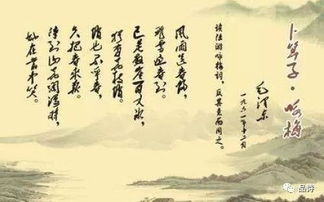 卜算子·咏梅
毛泽东
一九六一年十二月
读陆游咏梅词，
反其意而用之。
风雨送春归，
飞雪迎春到。
已是悬崖百丈冰，
犹有花枝俏。
俏也不争春，
只把春来报。
待到山花烂漫时，
她在丛中笑。
品诗